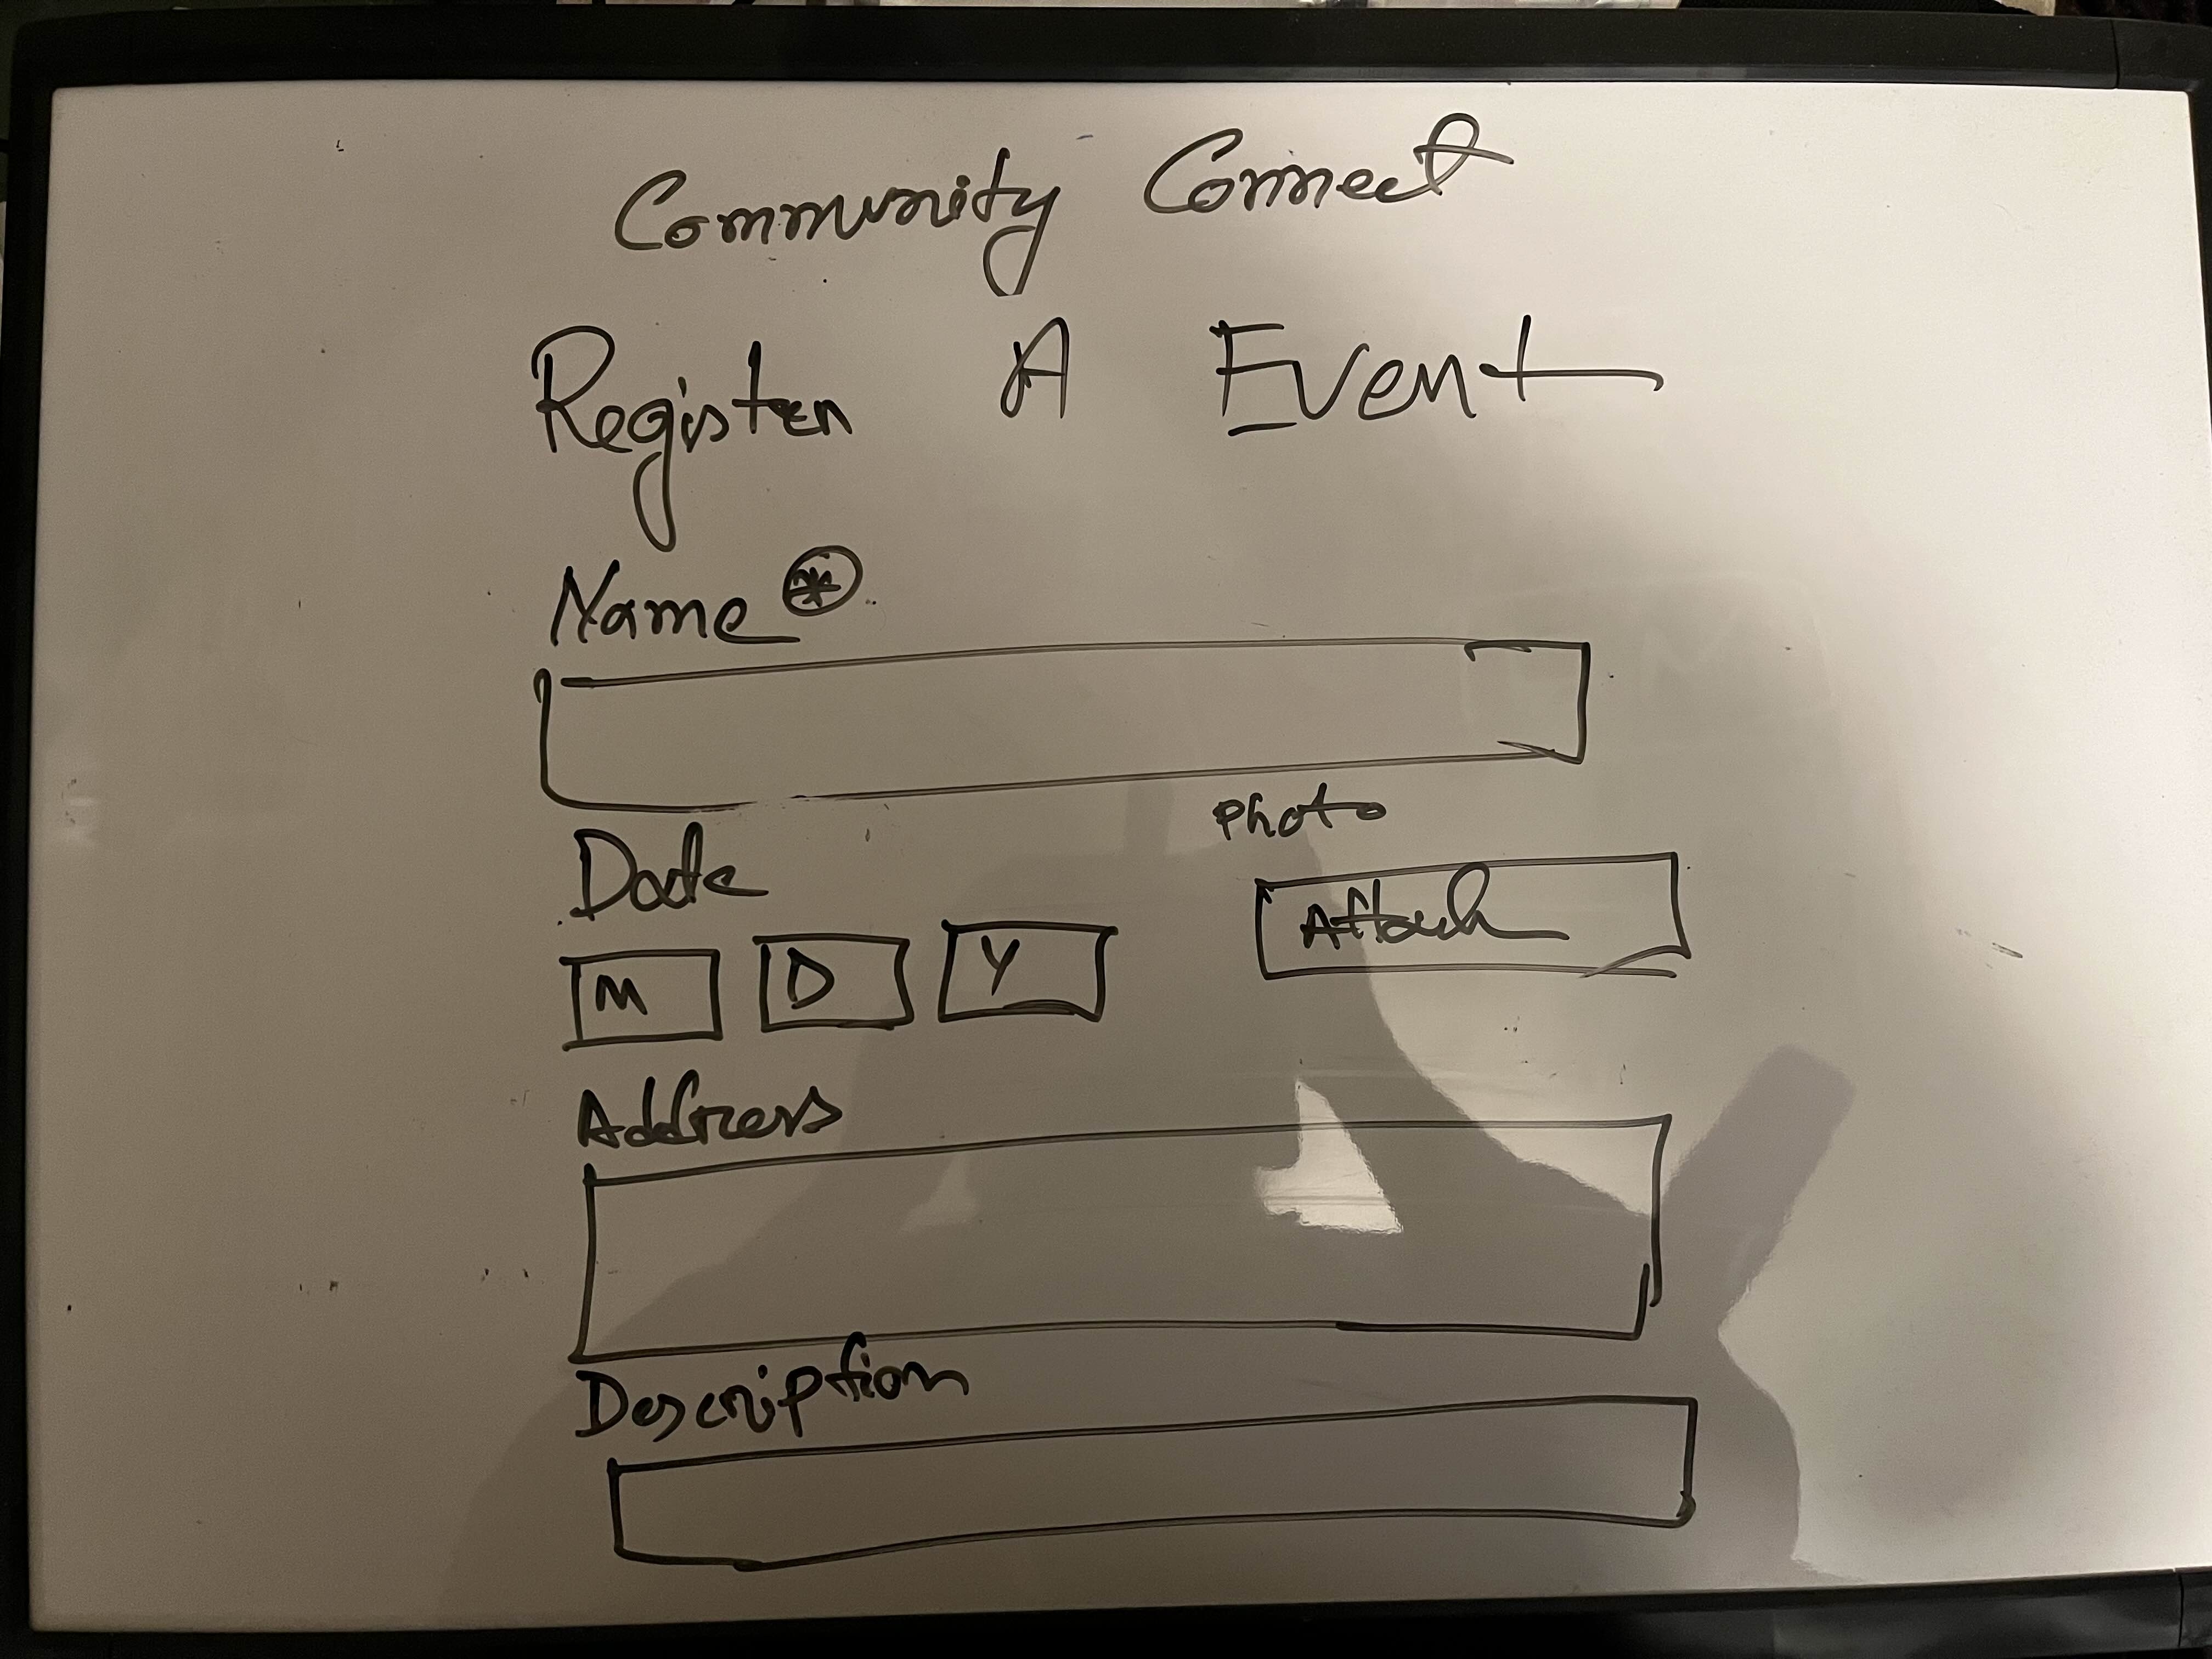 Community Connect
Register A Event
Name *
Date
Photo
M D Y
Attach
Address
Description